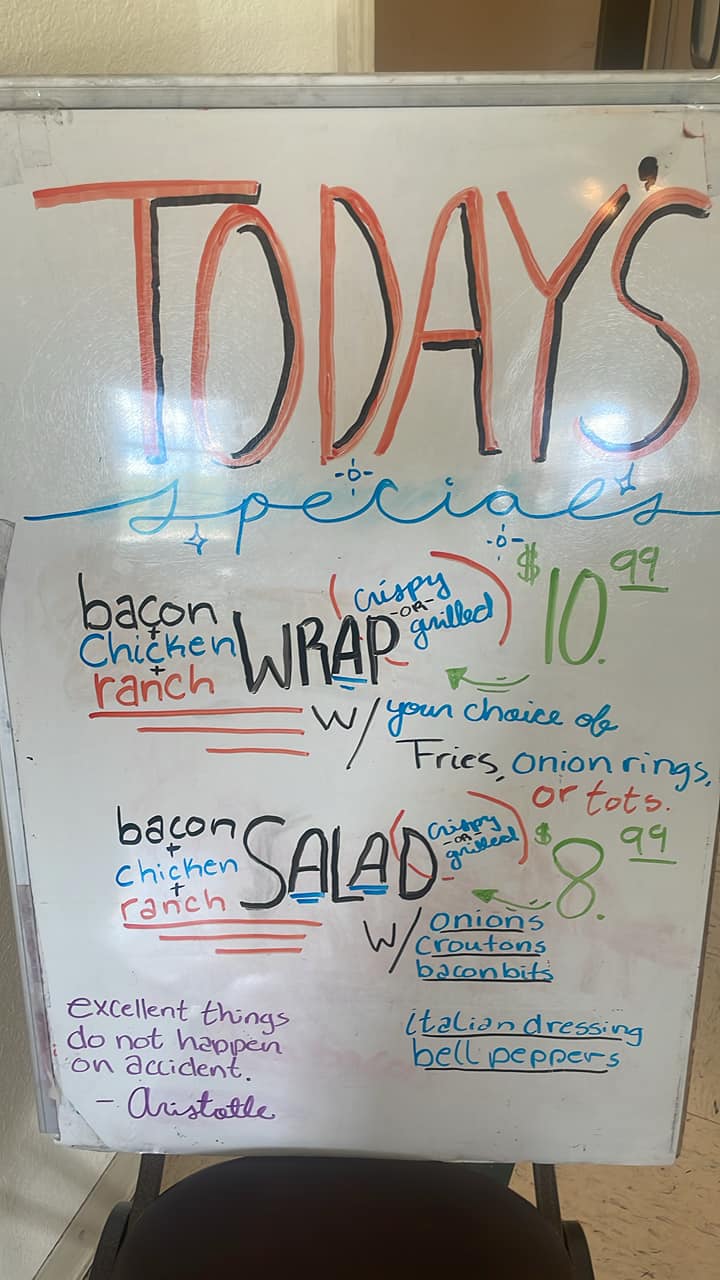 TODAY'S
specials
bacon
+
chicken
+
ranch
WRAP
(crispy
-OR-
grilled)
$10.99
w/ your choice of
Fries, onion rings,
or tots.
bacon
+
chicken
+
ranch
SALAD
(crispy
-OR-
grilled)
$8.99
w/ onions
croutons
baconbits
italian dressing
bell peppers
excellent things
do not happen
on accident.
- Aristotle